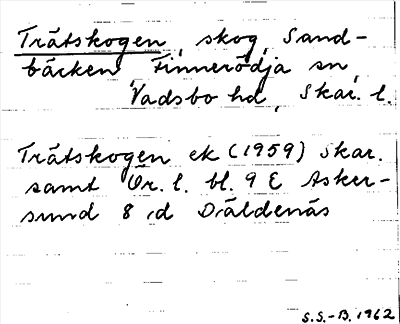 Trätskogen, skog, Sand-
bäcken Finnerödja sn,
Vadsbo hd, Skar. l.
Trätskogen ek (1959) Skar.
samt Ör. l. bl. 9 E Asker-
sund 8 d Däldenäs
S.S.-B. 1962